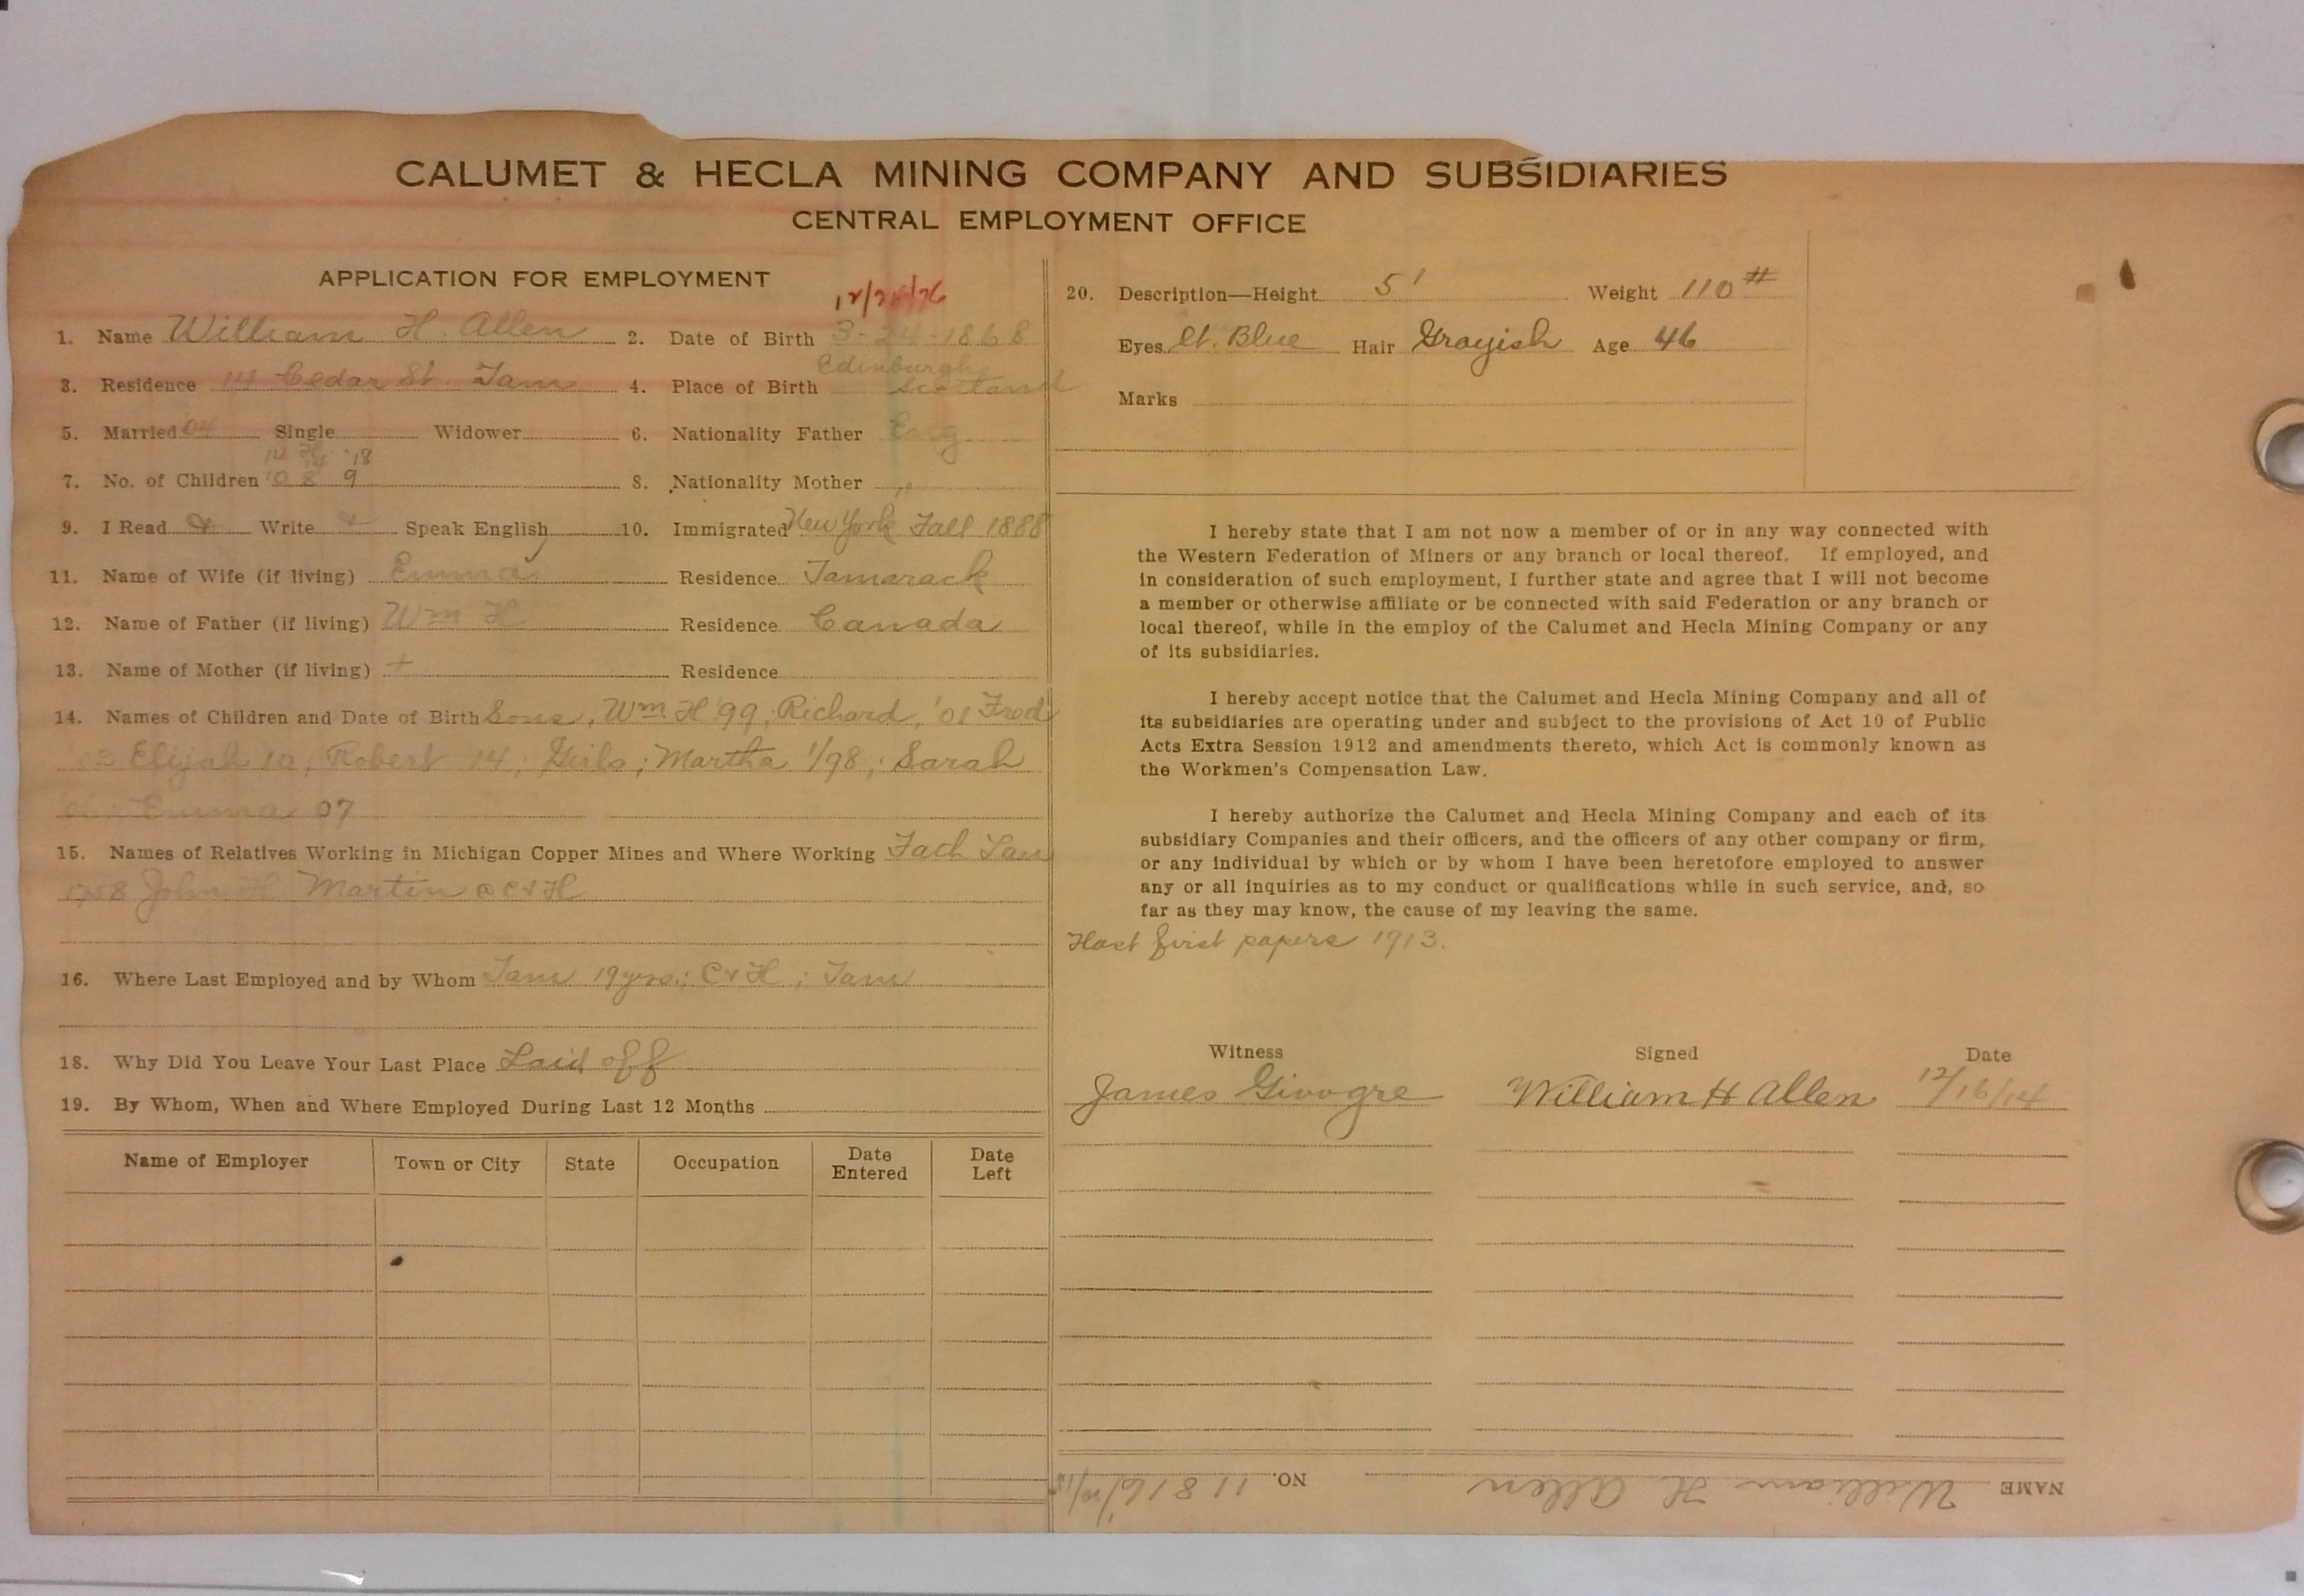 CALUMET & HECLA MINING COMPANY AND SUBSIDIARIES
CENTRAL EMPLOYMENT OFFICE
APPLICATION FOR EMPLOYMENT
1. Name William H. Allen 2. Date of Birth 3-24-1868
3. Residence 14 Cedar St. Tam 4. Place of Birth Edinburgh Scotland
5. Married '04 Single Widower 6. Nationality Father Eng
'18
7. No. of Children 10 8 9 8. Nationality Mother "
9. I Read Write Speak English 10. Immigrated New York Fall 1888
11. Name of Wife (if living) Emma Residence Tamarack
12. Name of Father (if living) Wm H Residence Canada
13. Name of Mother (if living) + Residence
14. Names of Children and Date of Birth Sons, Wm. H '99; Richard, '01 Fred
'02 Elijah 10; Robert '14; Girls; Martha 1/98; Sarah
Emma 07
15. Names of Relatives Working in Michigan Copper Mines and Where Working
John H Martin @ C & H
16. Where Last Employed and by Whom Tam 19 yrs.; C & H; Tam
18. Why Did You Leave Your Last Place Laid off
19. By Whom, When and Where Employed During Last 12 Months
Name of Employer Town or City State Occupation Date Entered Date Left
20. Description—Height 5' Weight 110 #
Eyes Lt. Blue Hair Grayish Age 46
Marks
I hereby state that I am not now a member of or in any way connected with
the Western Federation of Miners or any branch or local thereof. If employed, and
in consideration of such employment, I further state and agree that I will not become
a member or otherwise affiliate or be connected with said Federation or any branch or
local thereof, while in the employ of the Calumet and Hecla Mining Company or any
of its subsidiaries.
I hereby accept notice that the Calumet and Hecla Mining Company and all of
its subsidiaries are operating under and subject to the provisions of Act 10 of Public
Acts Extra Session 1912 and amendments thereto, which Act is commonly known as
the Workmen's Compensation Law.
I hereby authorize the Calumet and Hecla Mining Company and each of its
subsidiary Companies and their officers, and the officers of any other company or firm,
or any individual by which or by whom I have been heretofore employed to answer
any or all inquiries as to my conduct or qualifications while in such service, and, so
far as they may know, the cause of my leaving the same.
first papers 1913.
Witness Signed Date
James William H Allen 12/16/14
NAME William H Allen NO. 11816